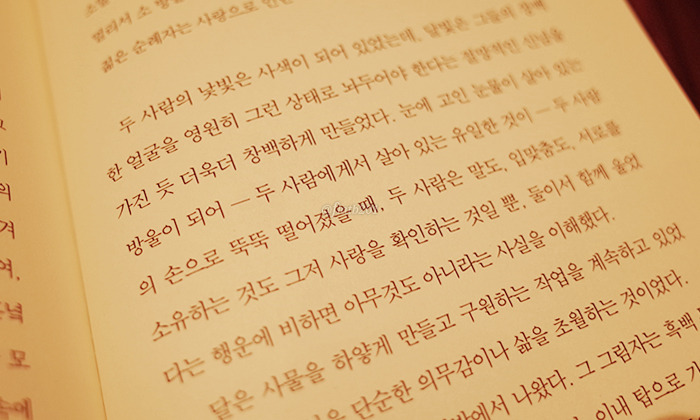 소를
젊은 순례자는 사랑으로
두 사람의 낯빛은 사색이 되어 있었는데, 달빛은 그들의 창백
한 얼굴을 영원히 그런 상태로 놔두어야 한다는 절망적인 신념을
가진 듯 더욱더 창백하게 만들었다. 눈에 고인 눈물이 살아 있는
방울이 되어 — 두 사람에게서 살아 있는 유일한 것이 — 두 사람
의 손으로 뚝뚝 떨어졌을 때, 두 사람은 말도, 입맞춤도, 서로를
소유하는 것도 그저 사랑을 확인하는 것일 뿐, 둘이서 함께 울었
다는 행운에 비하면 아무것도 아니라는 사실을 이해했다.
달은 사물을 하얗게 만들고 구원하는 작업을 계속하고 있었
단순한 의무감이나 삶을 초월하는 것이었다.
에서 나왔다. 그 그림자는 흑백
탑으로
기
의
겨
여,
모